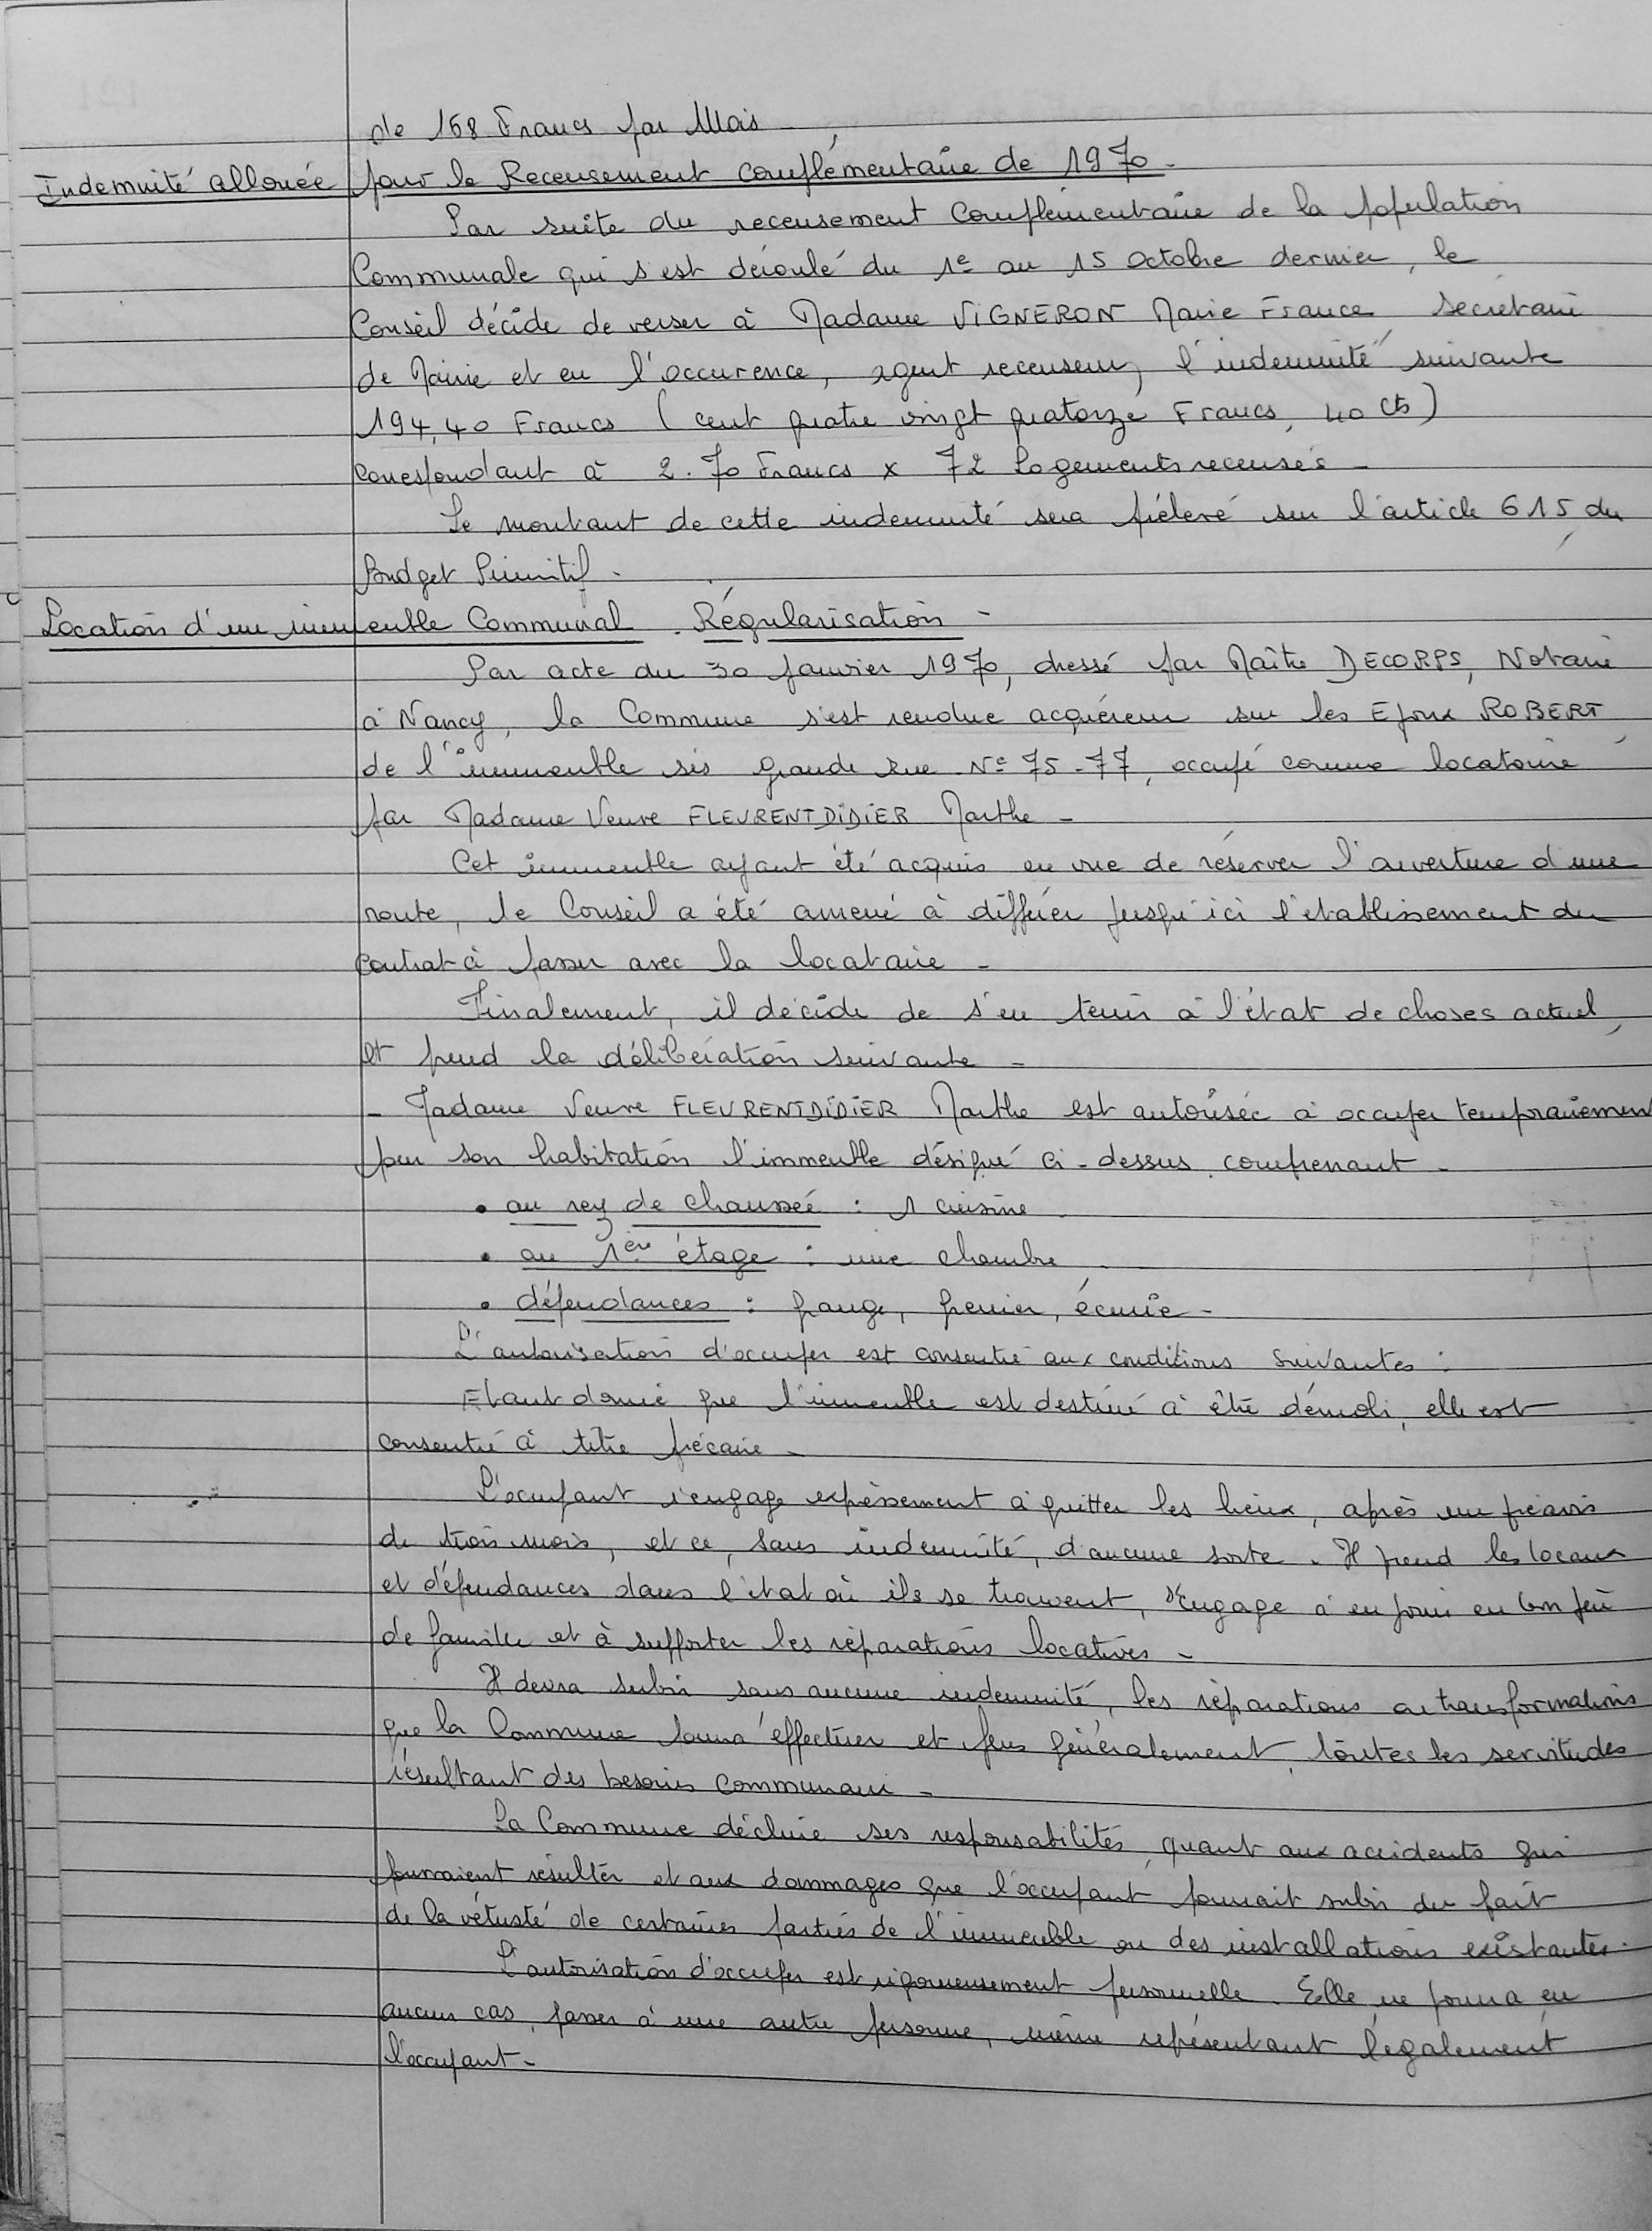 de 168 Francs par Mois
Indemnité allouée pour le Recensement complémentaire de 1970.
Par suite du recensement complémentaire de la population
Communale qui s'est déroulé du 1e au 15 Octobre dernier, le
Conseil décide de verser à Madame VIGNERON Marie France secrétaire
de Mairie et en l'occurence, agent recenseur, l'indemnité suivante
194,40 Francs (cent quatre vingt quatorze Francs, 40 cts)
correspondant à 2.70 Francs x 72 Logements recensés -
Le montant de cette indemnité sera prélevé sur l'article 615 du
Budget Primitif -
Location d'un immeuble Communal. Régularisation -
Par acte du 30 janvier 1970, dressé par Maître DECORPS, Notaire
à Nancy, la Commune s'est rendue acquéreur sur les Epoux ROBERT
de l'immeuble sis grande rue N° 75-77, occupé comme locataire
par Madame Veuve FLEURENTDIDIER Marthe -
Cet immeuble ayant été acquis en vue de réserver l'ouverture d'une
route, le Conseil a été amené à différer jusqu'ici l'établissement du
contrat à passer avec la locataire -
Finalement, il décide de s'en tenir à l'état de choses actuel,
et prend la délibération suivante -
- Madame Veuve FLEURENTDIDIER Marthe est autorisée à occuper temporairement
pour son habitation l'immeuble désigné ci-dessus comprenant -
• au rez de chaussée : 1 cuisine
• au 1er étage : une chambre
• dépendances : grange, grenier, écurie -
L'autorisation d'occuper est consentie aux conditions suivantes :
Etant donné que l'immeuble est destiné à être démoli, elle est
consentie à titre précaire -
L'occupant s'engage expressement à quitter les lieux, après un préavis
de trois mois, et ce, sans indemnité, d'aucune sorte. Il prend les locaux
et dépendances dans l'état où ils se trouvent, s'engage à en jouir en bon père
de famille et à supporter les réparations locatives -
Il devra subir sans aucune indemnité, les réparations ou transformations
que la Commune pourra effectuer et plus généralement, toutes les servitudes
résultant des besoins communaux -
La Commune décline ses responsabilités, quant aux accidents qui
pourraient résulter et aux dommages que l'occupant pourrait subir du fait
de la vétusté de certaines parties de l'immeuble ou des installations existantes.
L'autorisation d'occuper est rigoureusement personnelle. Elle ne pourra en
aucun cas, passer à une autre personne, même représentant légalement
l'occupant -